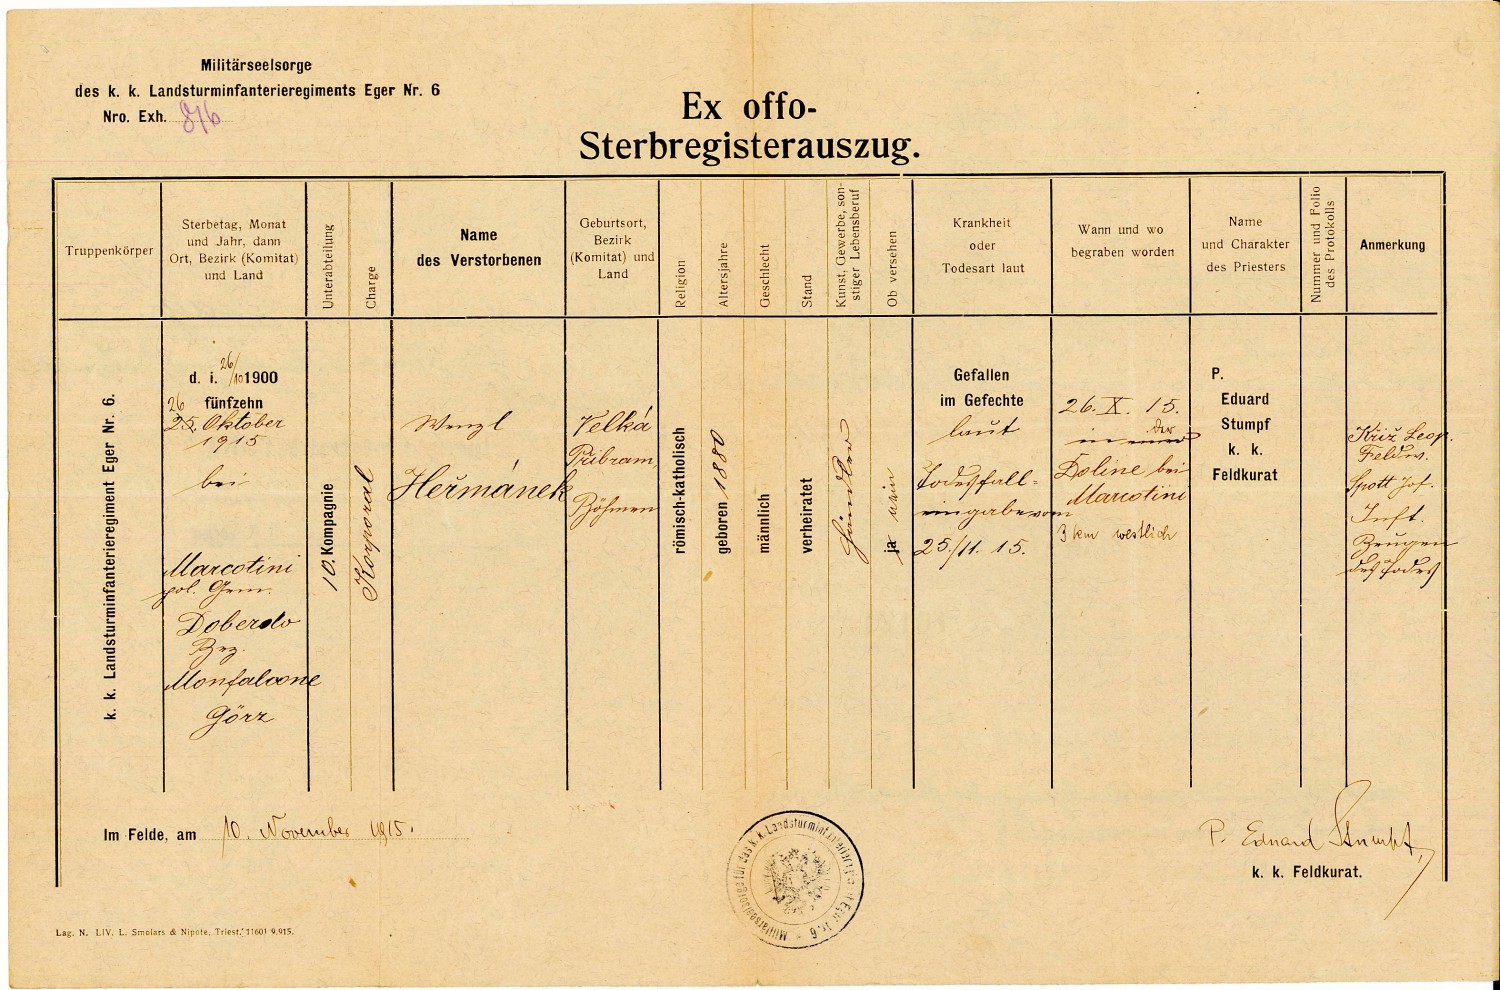 Militärseelsorge
des k. k. Landsturminfanterieregiments Eger Nr. 6
Nro. Exh. 876
Ex offo-
Sterbregisterauszug.
Truppenkörper
Sterbetag, Monat
und Jahr, dann
Ort, Bezirk (Komitat)
und Land
Unterabteilung
Charge
Name
des Verstorbenen
Geburtsort,
Bezirk
(Komitat) und
Land
Religion
Altersjahre
Geschlecht
Stand
Kunst, Gewerbe, son-
stiger Lebensberuf
Ob versehen
Krankheit
oder
Todesart laut
Wann und wo
begraben worden
Name
und Charakter
des Priesters
Nummer und Folio
des Protokolls
Anmerkung
k. k. Landsturminfanterieregiment Eger Nr. 6.
d. i. 26/10 1900
fünfzehn
26
25. Oktober
1915
bei
Marcotini
pol. Gem.
Doberdo
Bez.
Monfalcone
Görz
10. Kompagnie
Korporal
Wenzl
Heřmánek
Velká
Přibram,
Böhmen
römisch-katholisch
geboren 1880
männlich
verheiratet
Händler
ja nein
Gefallen
im Gefechte
laut
Todesfall-
eingabe vom
25./11. 15.
26. X. 15.
in einer der
Doline bei
Marcotini
3 km westlich
P.
Eduard
Stumpf
k. k.
Feldkurat
Kriz Leop.
Feldw.
Spott Jos.
Inft.
Zeugen
des Todes
Im Felde, am 10. November 1915.
P. Eduard Stumpf,
k. k. Feldkurat.
Militärseelsorge für das k. k. Landsturminfanterieregiment Eger Nr. 6
Lag. N. LIV. L. Smolars & Nipote, Triest. 11601 9.915.